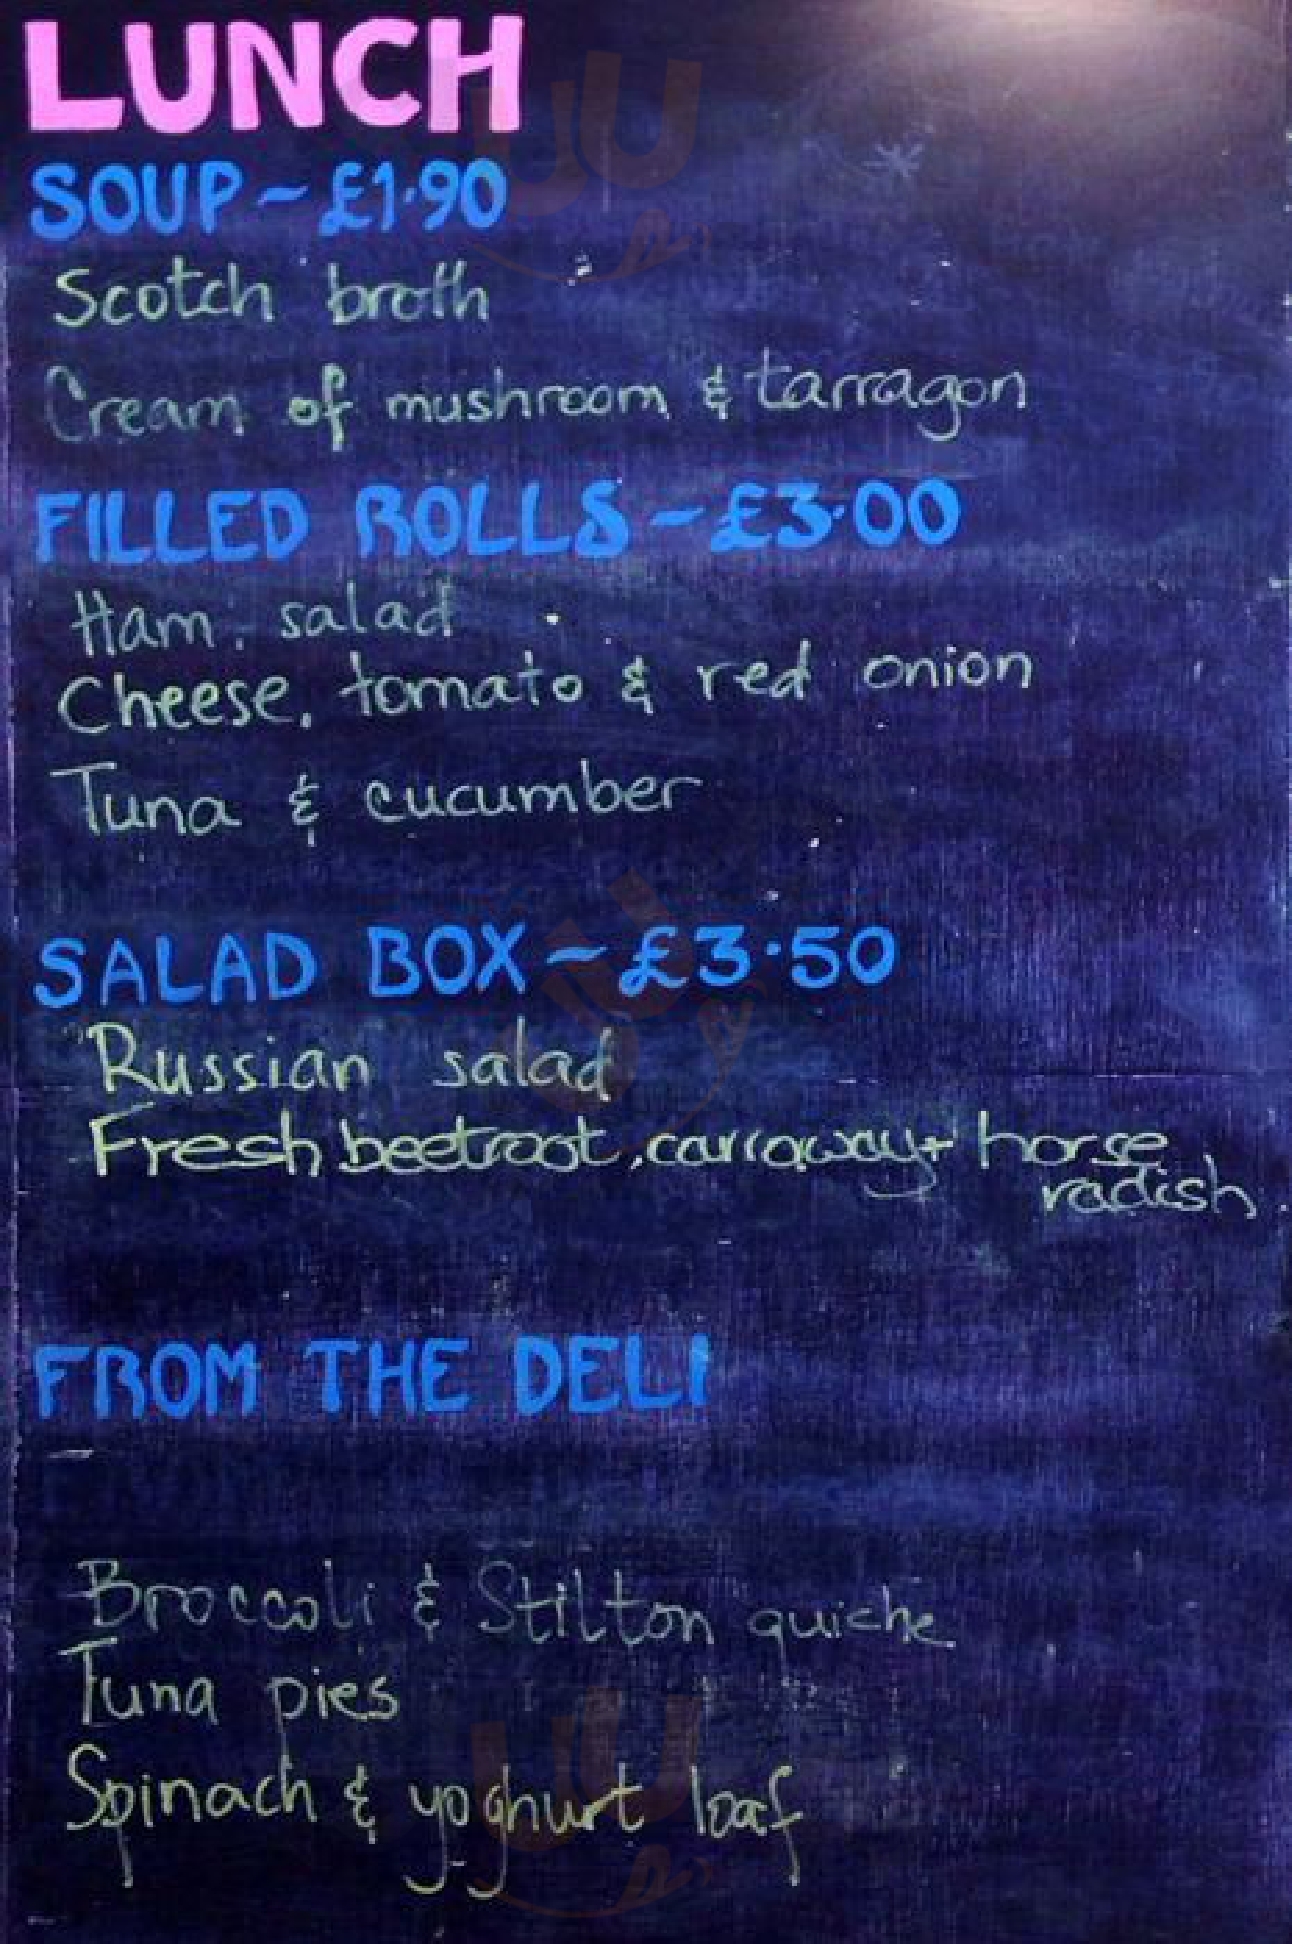 LUNCH
SOUP ~ £1.90
Scotch broth
Cream of mushroom & tarragon
FILLED ROLLS ~ £3.00
Ham, salad
Cheese, tomato & red onion
Tuna & cucumber
SALAD BOX ~ £3.50
Russian salad
Fresh beetroot, carraway + horse
radish.
FROM THE DELI
Broccoli & Stilton quiche
Tuna pies
Spinach & yoghurt loaf